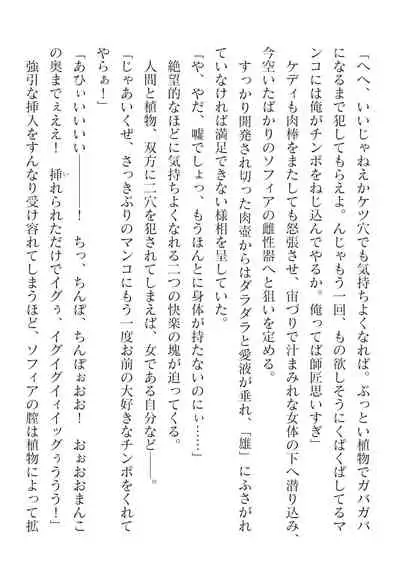 「へへ、いいじゃねえかケツ穴でも気持ちよくなれば。ぶっとい植物でガバガバ
になるまで犯してもらえよ。んじゃもう一回、もの欲しそうにくぱくぱしてるマ
ンコには俺がチンポをねじ込んでやるか。俺ってば師匠思いすぎ」
ケディも肉棒をまたしても怒張させ、宙づりで汁まみれな女体の下へ潜り込み、
今空いたばかりのソフィアの雌性器へと狙いを定める。
すっかり開発され切った肉壺からはダラダラと愛液が垂れ、「雄」にふさがれ
ていなければ満足できない様相を呈していた。
「や、やだ、嘘でしょっ、もうほんとに身体が持たないのにぃ……」
絶望的なほどに気持ちよくなれる二つの快楽の塊が迫ってくる。
人間と植物、双方に二穴を犯されてしまえば、女である自分など――。
「じゃあいくぜ、さっきぶりのマンコにもう一度お前の大好きなチンポをくれて
やらぁ！」
「あひぃいいいい――――！　ちっ、ちんぽ、ちんぽぉおお！　おぉおおまんこ
の奥までぇええ！　挿れられただけでイグぅ、イグイグイィイッグぅううう！」
強引な挿入をすんなり受け容れてしまうほど、ソフィアの膣は植物によって拡